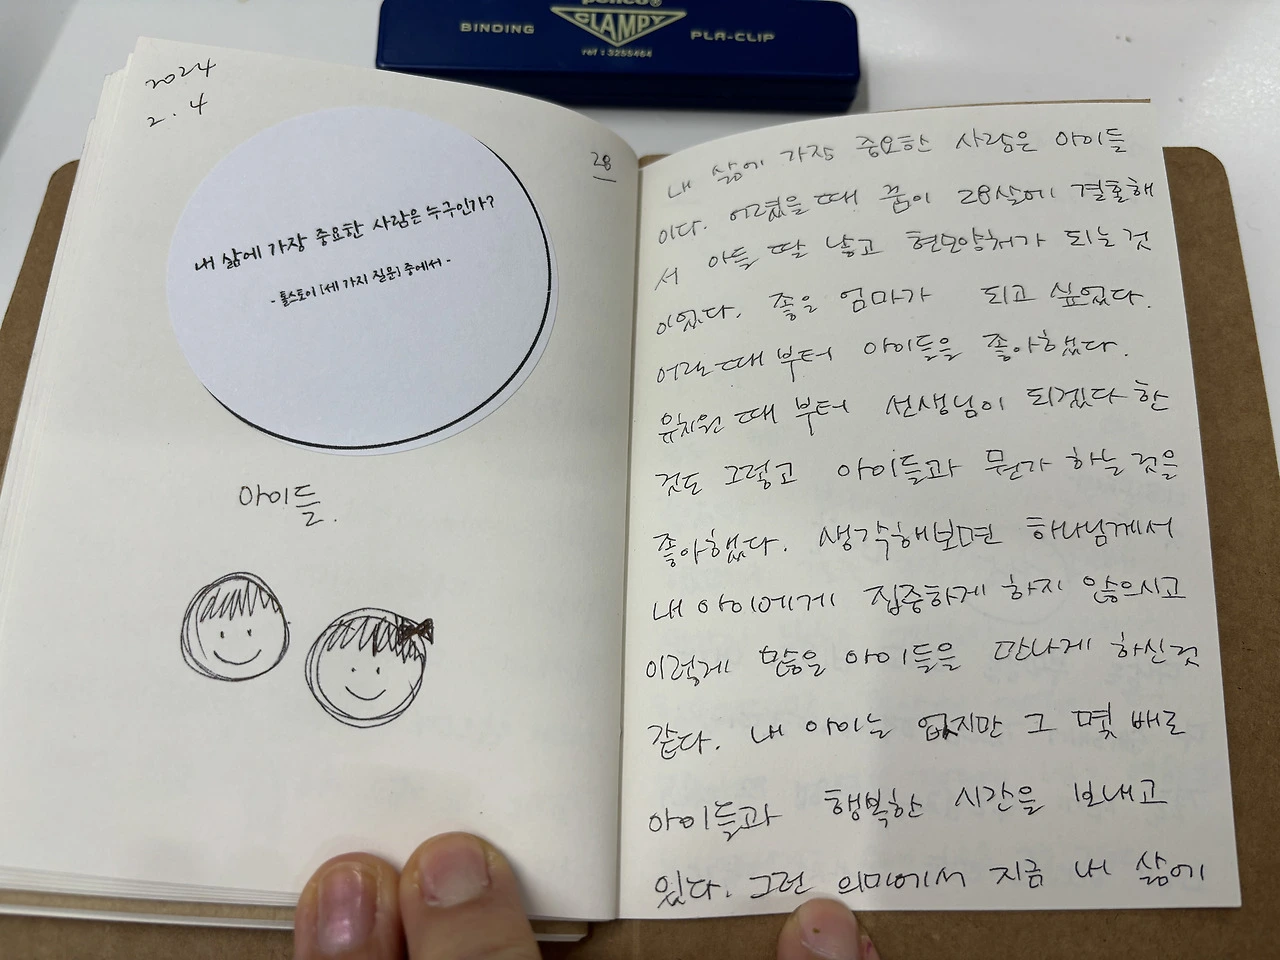 penco®
BINDING CLAMPY PLA-CLIP
ref : 3255464
2024
2. 4
28
내 삶에 가장 중요한 사람은 누구인가?
- 톨스토이 [세 가지 질문] 중에서 -
아이들.
내 삶에 가장 중요한 사람은 아이들
이다. 어렸을 때 꿈이 28살에 결혼해
서 아들 딸 낳고 현모양처가 되는 것
이었다. 좋은 엄마가 되고 싶었다.
어릴때 부터 아이들을 좋아했다.
유치원 때 부터 선생님이 되겠다 한
것도 그렇고 아이들과 뭔가 하는 것을
좋아했다. 생각해보면 하나님께서
내 아이에게 집중하게 하지 않으시고
이렇게 많은 아이들을 만나게 하신 것
같다. 내 아이는 없지만 그 몇 배로
아이들과 행복한 시간을 보내고
있다. 그런 의미에서 지금 내 삶에